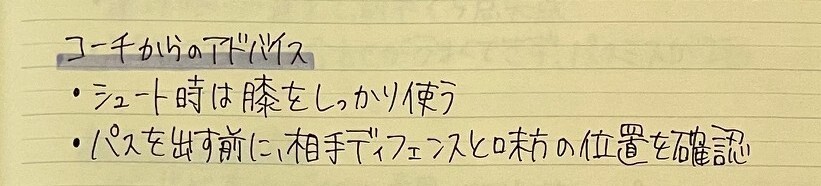 コーチからのアドバイス
・シュート時は膝をしっかり使う
・パスを出す前に、相手ディフェンスと味方の位置を確認